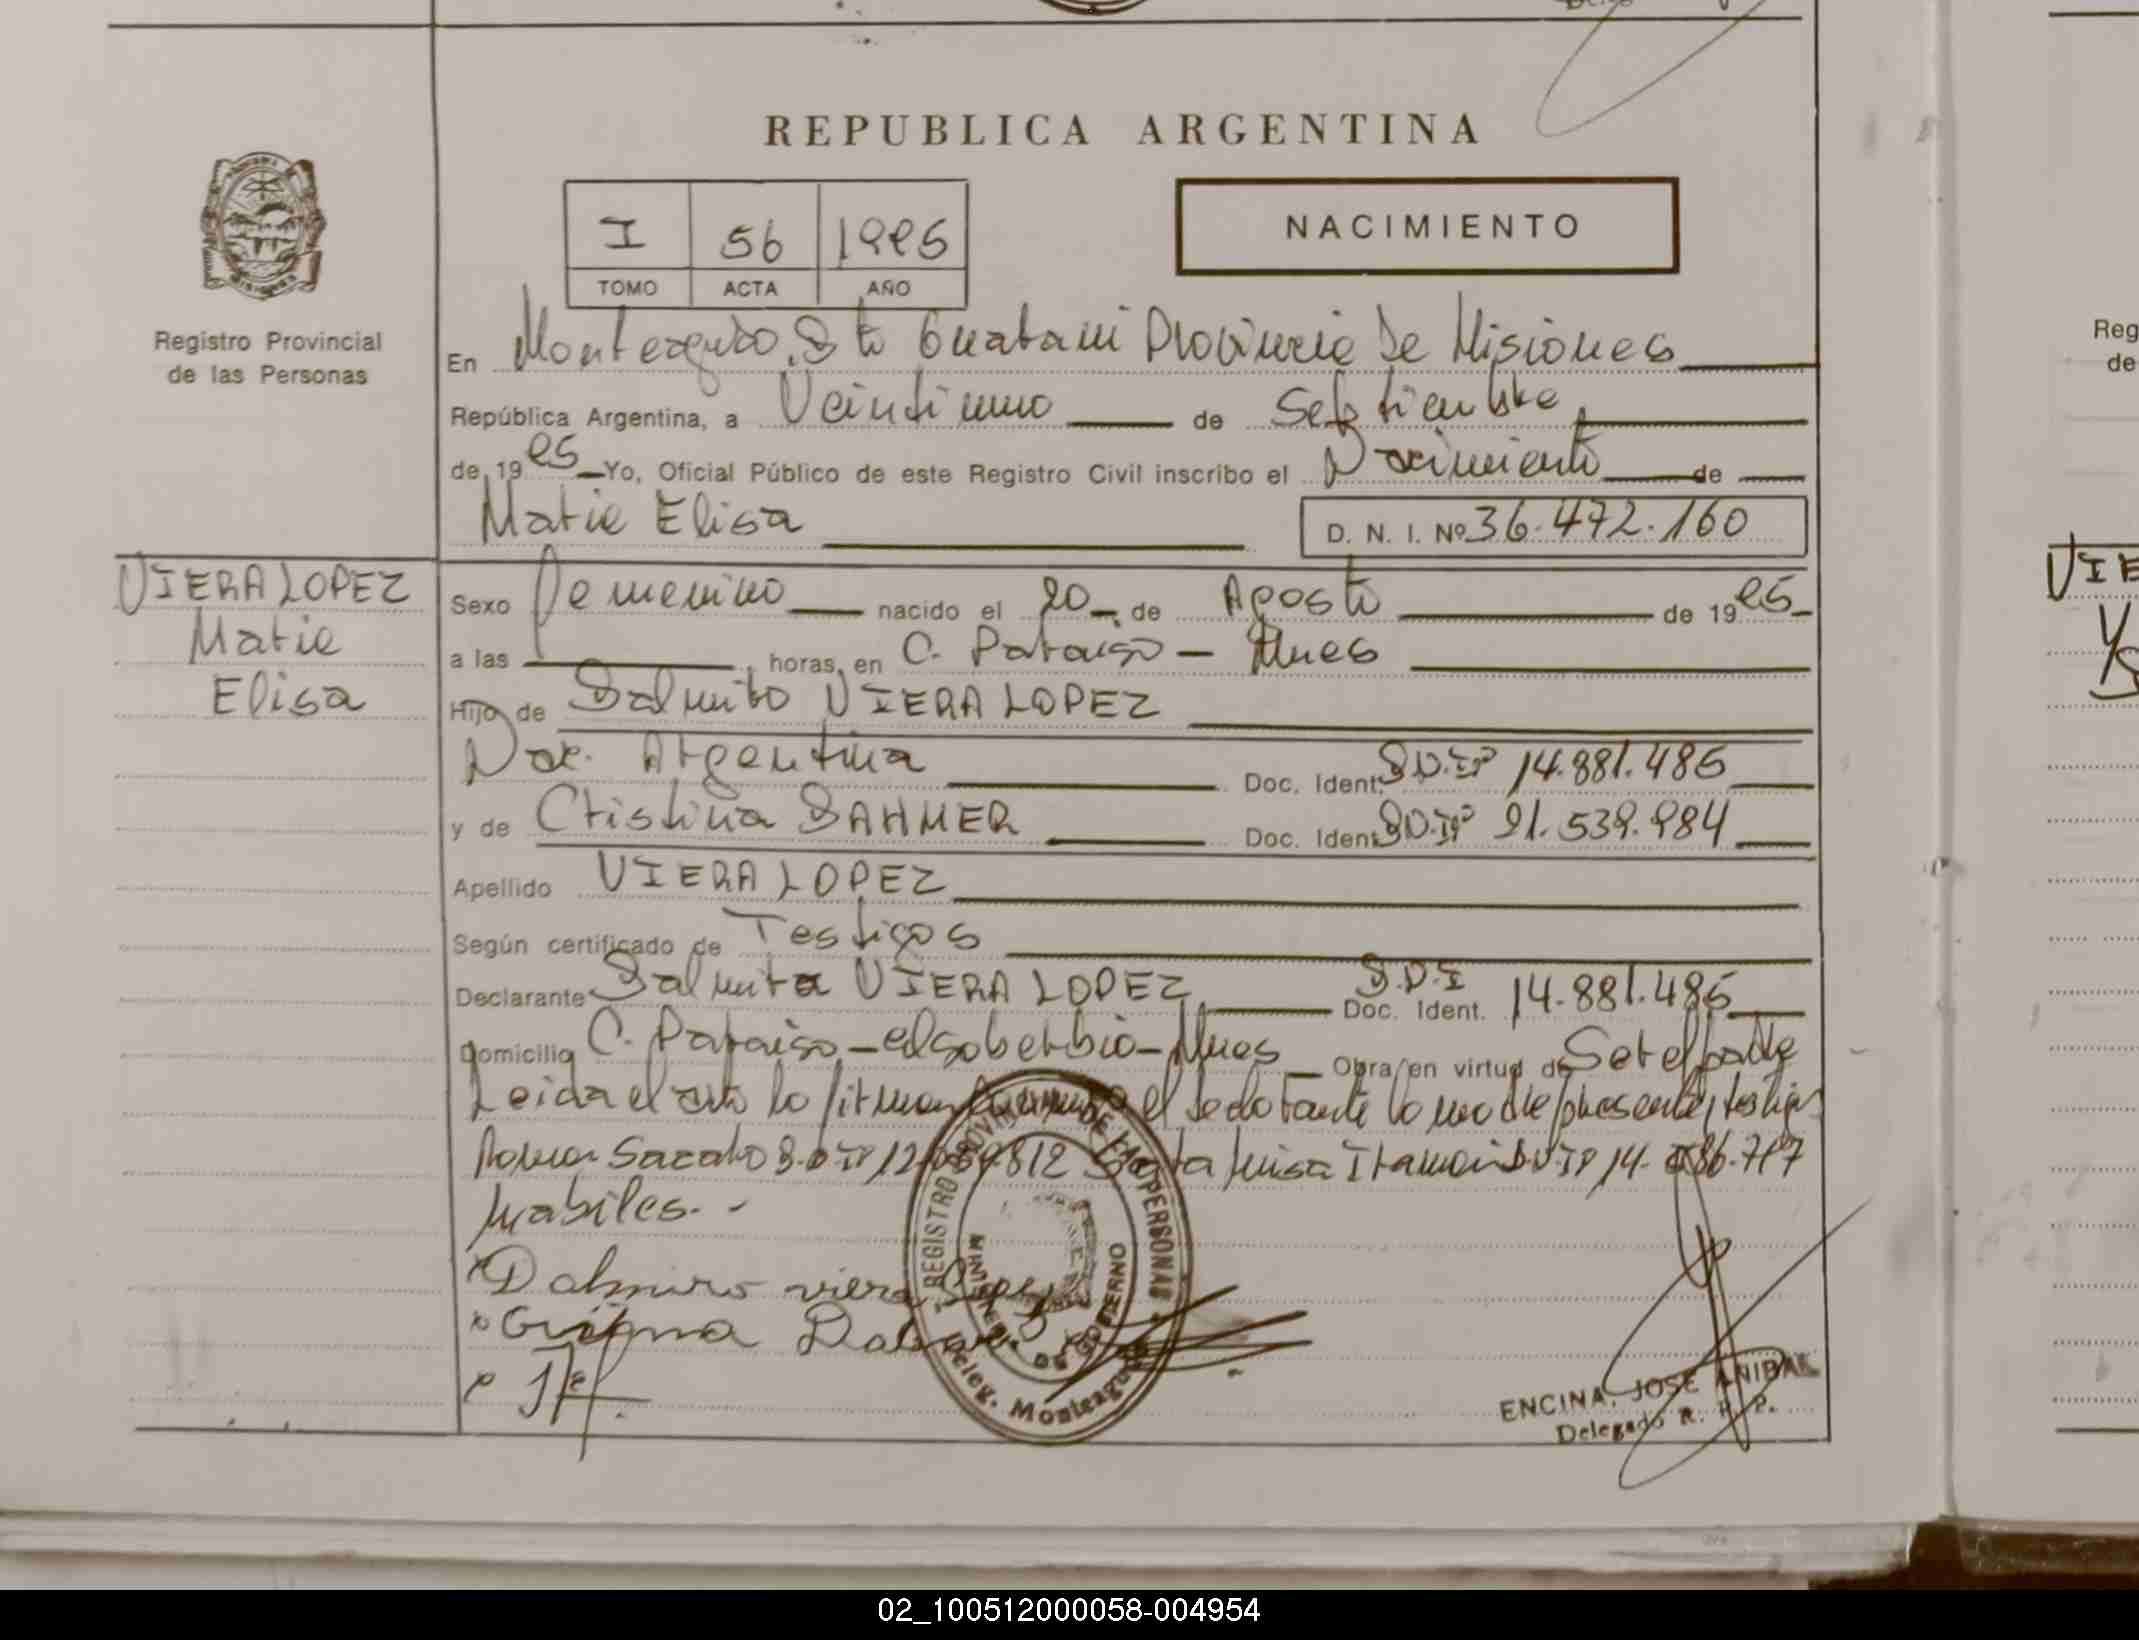 REPUBLICA ARGENTINA
I 56 1995
TOMO ACTA AÑO
NACIMIENTO
Registro Provincial
de las Personas
En Monteagudo, Dto Guarani Provincia De Misiones
República Argentina, a Veintiuno de Septiembre
de 19 95 Yo, Oficial Público de este Registro Civil inscribo el Nacimiento de
Maria Elisa
D. N. I. Nº 36.472.160
VIERA LOPEZ
Maria
Elisa
Sexo Femenino nacido el 20 de Agosto de 19 95
a las horas, en C. Paraiso - Mnes
Hijo de Dalmiro VIERA LOPEZ
Nac. Argentina Doc. Ident. D.N.I 14.881.485
y de Cristina DAHMER Doc. Ident. D.N.I 21.539.984
Apellido VIERA LOPEZ
Según certificado de Testigos
Declarante Dalmiro VIERA LOPEZ Doc. Ident. D.N.I 14.881.485
Domicilio C. Paraiso - el soberbio - Mnes Obra en virtud de Ser el padre
Leida el acta la firman el declarante la madre presente, testigos
Roman D.N.I 12. 812 Luisa D.N.I 14. 86.717
habiles.-
Dalmiro viera Lopez
REGISTRO PROVINCIAL DE LAS PERSONAS
MINISTERIO DE GOBIERNO
Deleg. Monteagudo
ENCINA, JOSE ANIBAL
Delegado R. P. P.
Reg
de
VIE
02_100512000058-004954